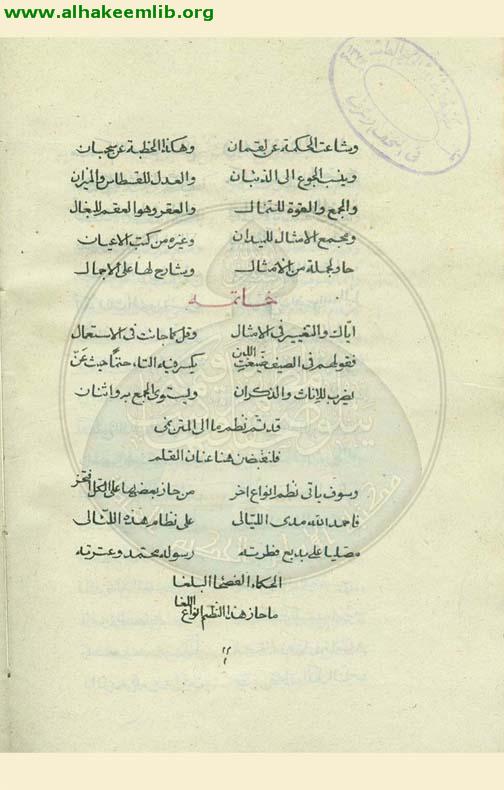 www.alhakeemlib.org
وشاعت الحكمة عن لقمان وهكذا الخطبة عن سحبان
وينسب الجوع الى الذئبان والعدل للقسطاس والميزان
والجمع والقوة للنمال والعقر وهو العقم للبغال
ومجمع الامثال للميدان وغيره من كتب الاعيان
حاو لجملة من الامثال ويشارح لها على الاجمال
خاتمه
اياك والتغيير في الامثال وقل كما جائت في الاستعمال
فقولهم في الصيف ضيعت اللبن بكسر فيه التاء حتما حيث عن
يضرب للاناث والذكران ويستوي الجمع به واثنان
قد تم نظم ما اليه المرتمى
فلنقبضن هنا عنان القلم
وسوف ياتي نظم انواع اخر من حاز بعضها على الكل افتخر
فاحمد الله مدى الليالى على نظام هذه اللئالى
مصليا على بديع فطرته رسوله محمد وعترته
الحكماء الفصحا البلغا
ما حاز هذا النظم انواع اللغا